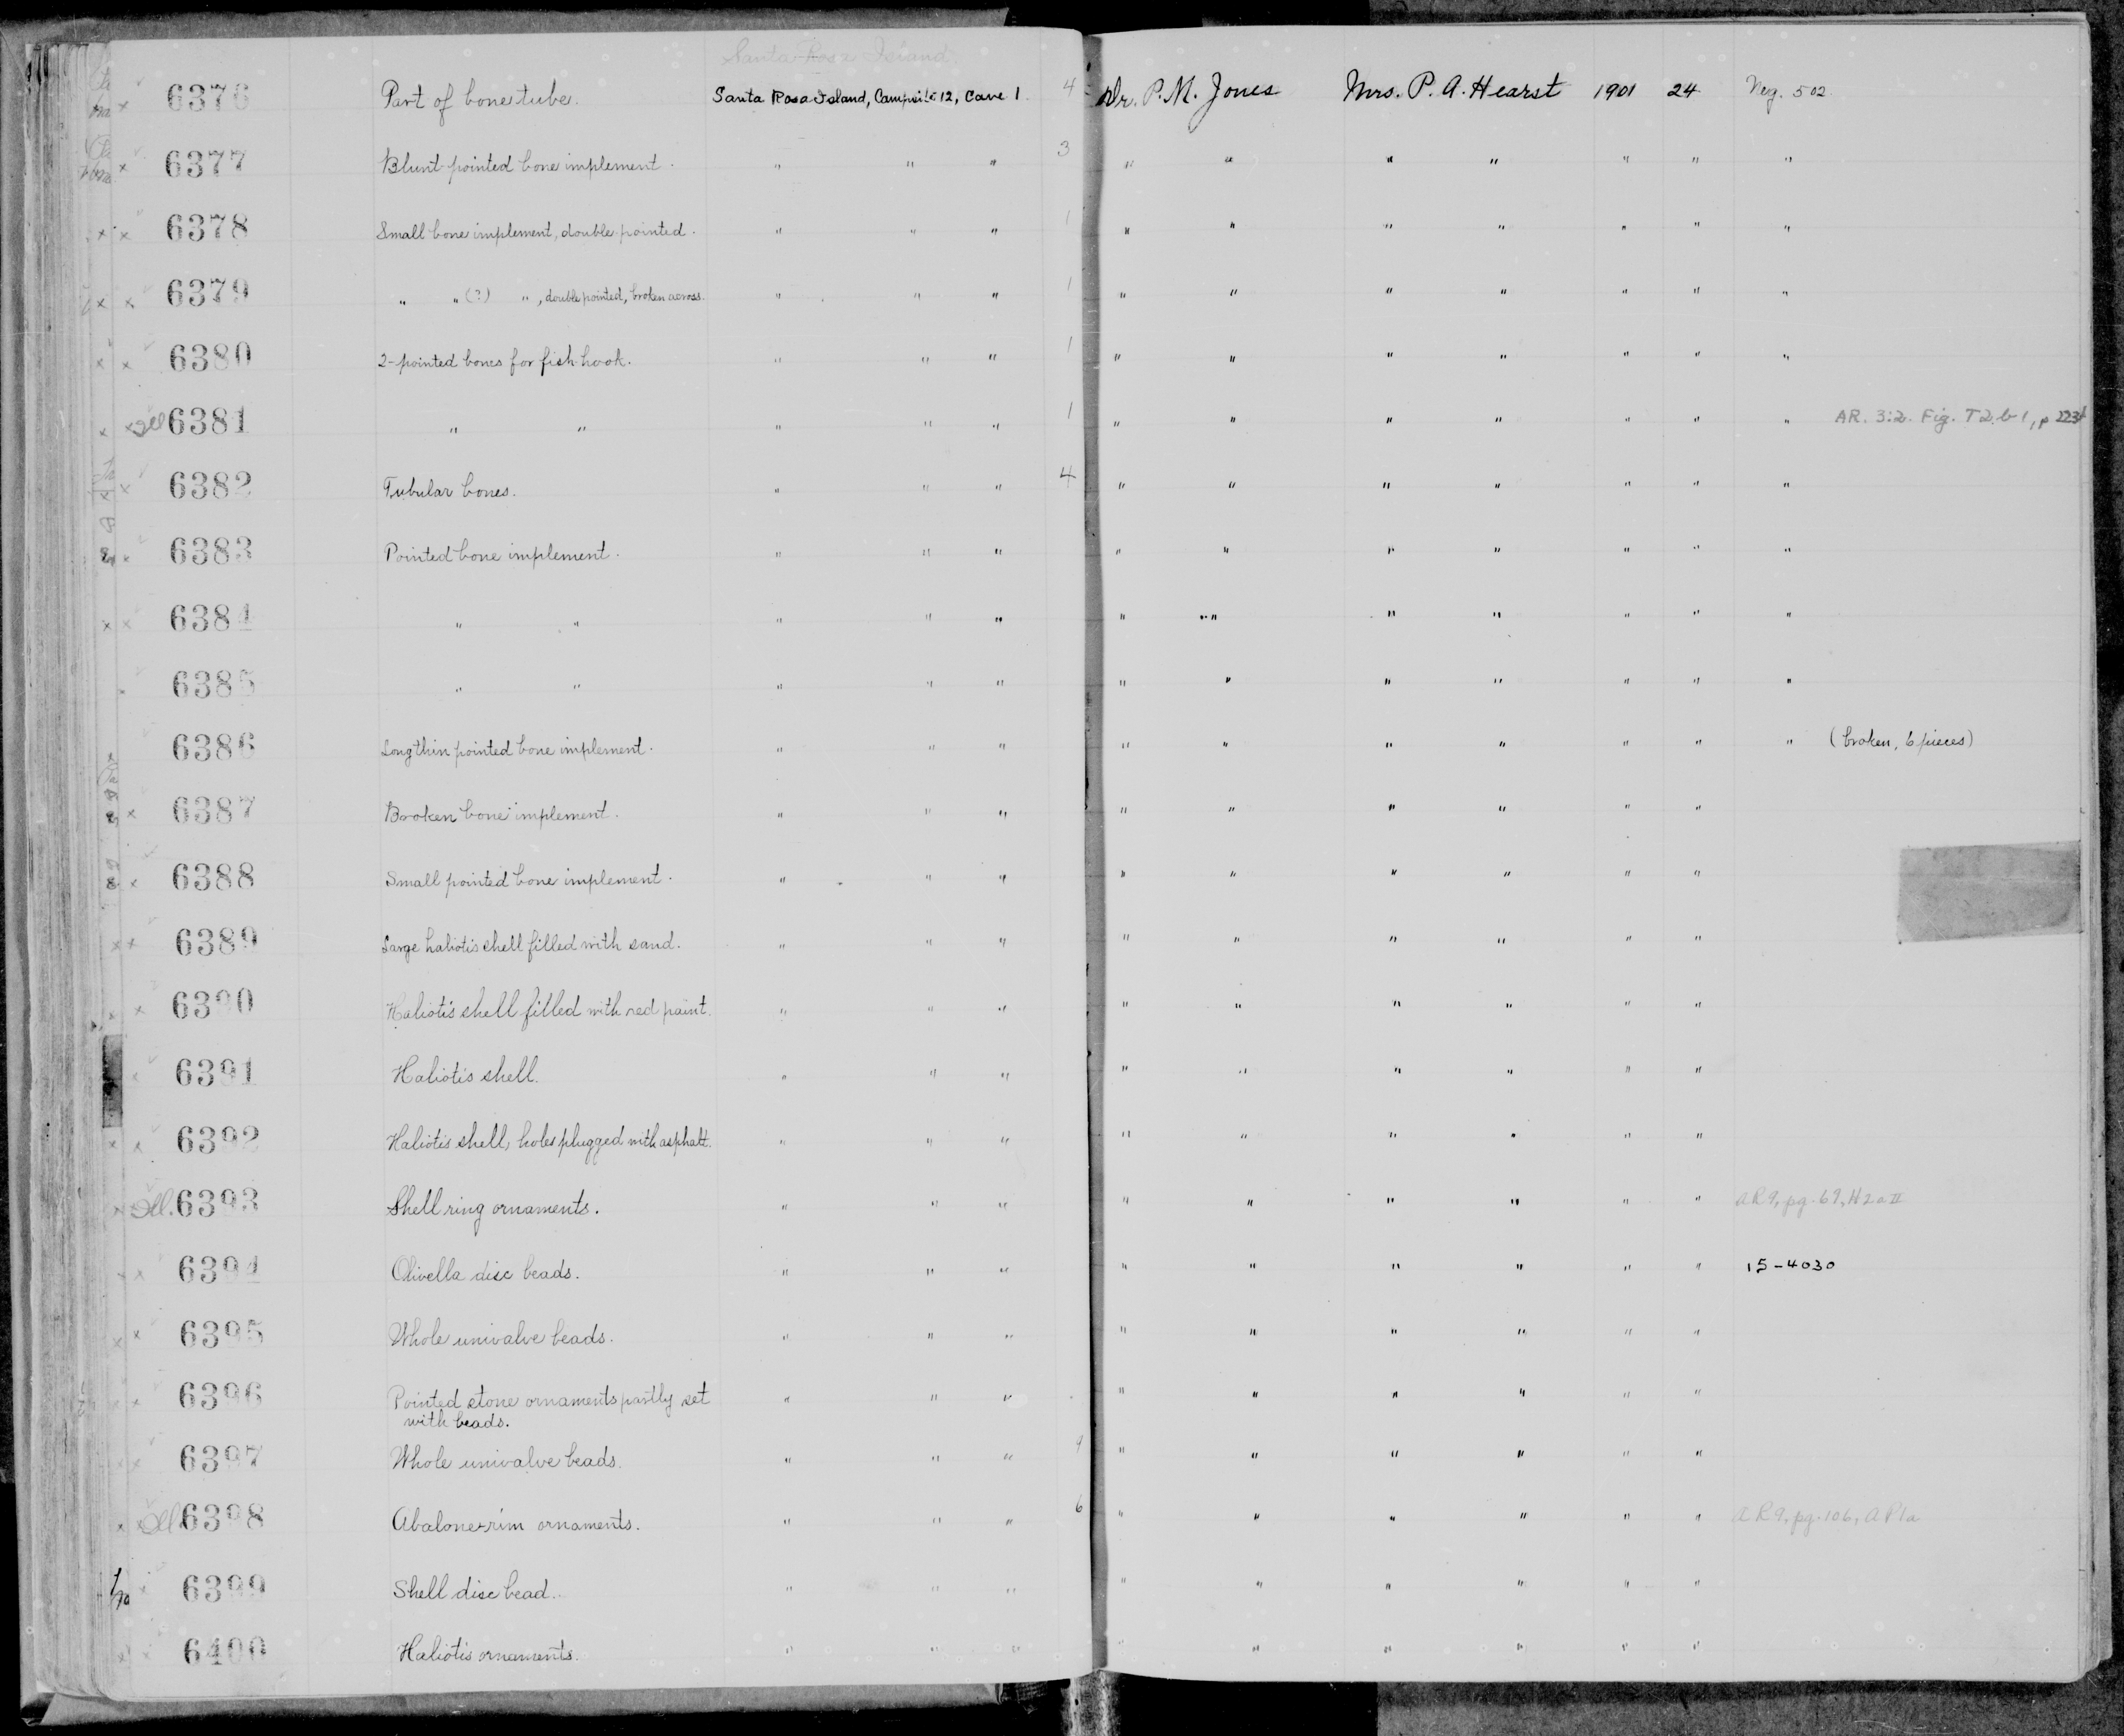 Santa Rosa Island.
6376 Part of bone tube. Santa Rosa Island, Campsite 12, Cave 1. 4 Dr. P. M. Jones Mrs. P. A. Hearst 1901 24 Neg. 502
6377 Blunt pointed bone implement. " " " 3 " " " " " " "
6378 Small bone implement, double pointed. " " " 1 " " " " " " "
6379 " " (?) " , double pointed, broken across. " " " 1 " " " " " " "
6380 2-pointed bones for fish-hook. " " " 1 " " " " " " "
Ill 6381 " " " " " 1 " " " " " " " AR. 3:2. Fig. T2.b1, p 223
6382 Tubular bones. " " " 4 " " " " " " "
6383 Pointed bone implement. " " " " " " " " " "
6384 " " " " " " " " " " " "
6385 " " " " " " " " " " " "
6386 Long thin pointed bone implement. " " " " " " " " " " (broken, 6 pieces)
6387 Broken bone implement. " " " " " " " " "
6388 Small pointed bone implement. " " " " " " " " "
6389 Large haliotis shell filled with sand. " " " " " " " " "
6390 Haliotis shell filled with red paint. " " " " " " " " "
6391 Haliotis shell. " " " " " " " " "
6392 Haliotis shell, holes plugged with asphalt. " " " " " " " " "
Ill. 6393 Shell ring ornaments. " " " " " " " " " AR9, pg. 69, H2aII
6394 Olivella disc beads. " " " " " " " " " 15-4030
6395 Whole univalve beads. " " " " " " " " "
6396 Pointed stone ornaments partly set " " " " " " " " "
with beads.
6397 Whole univalve beads. " " " 9 " " " " " "
Ill 6398 Abalone-rim ornaments. " " " 6 " " " " " " AR9, pg. 106, AP1a
6399 Shell disc bead. " " " " " " " " "
6400 Haliotis ornaments. " " " " " " " " "